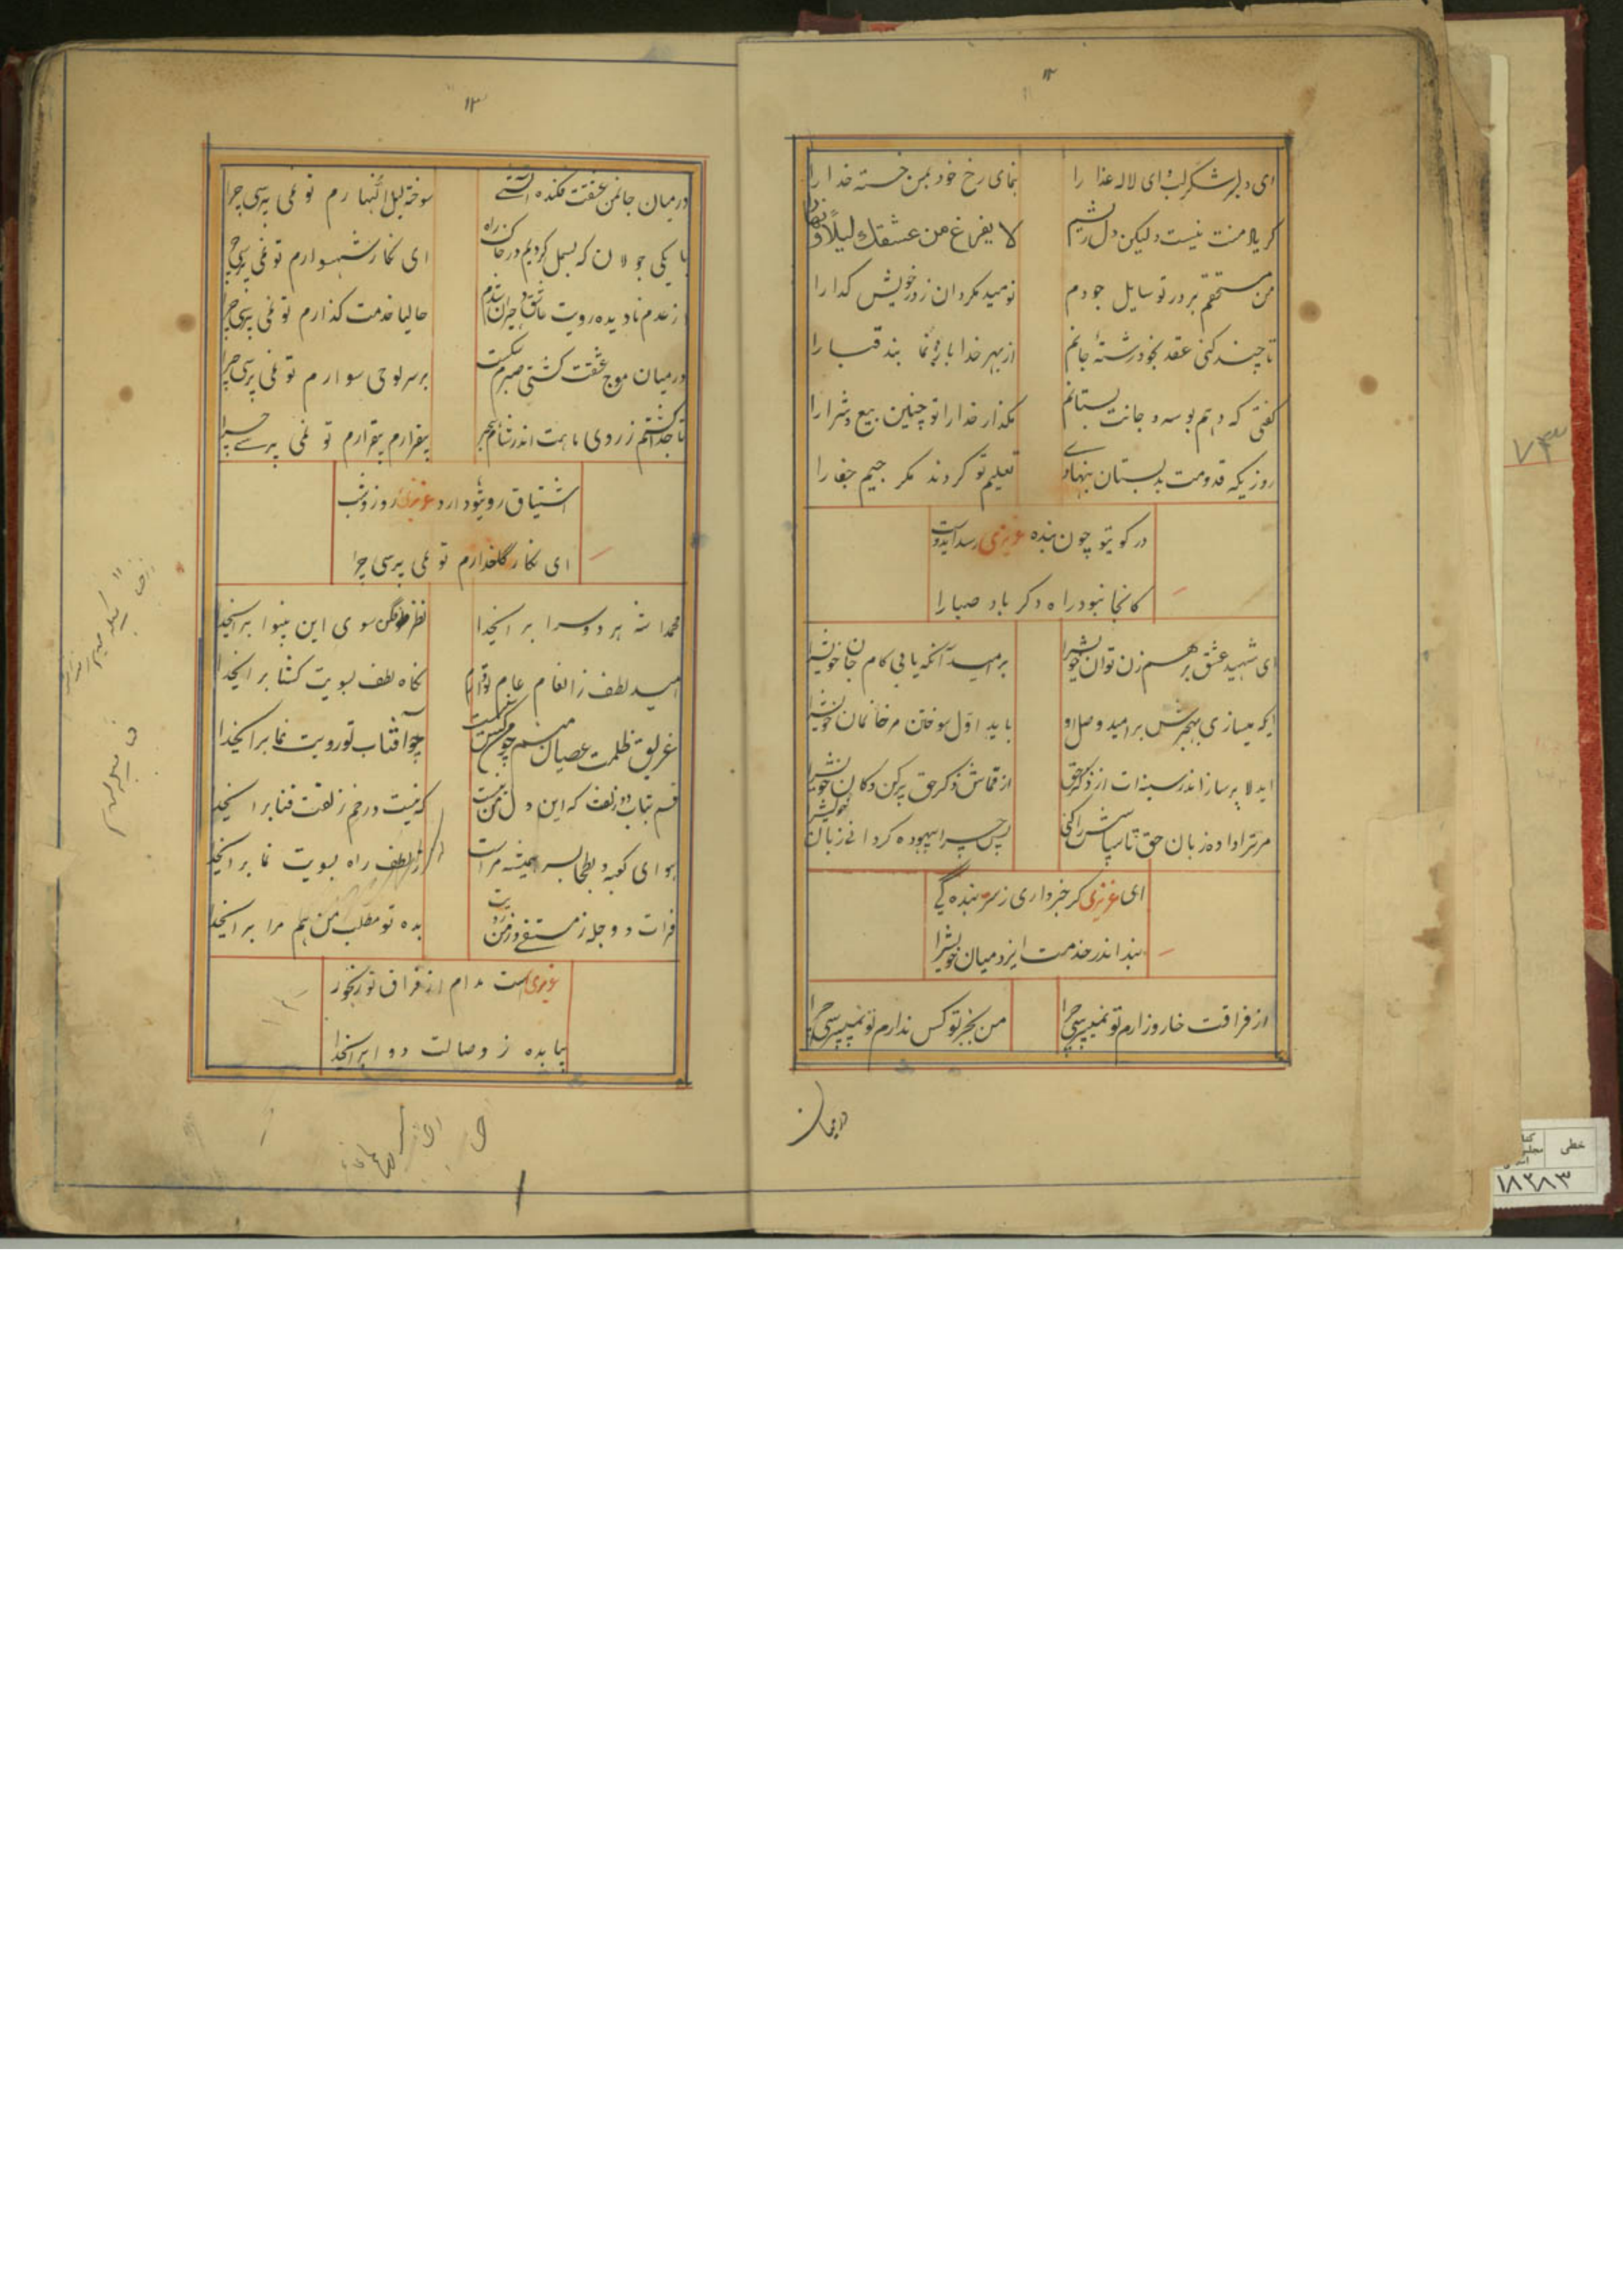 ۱۲
ای دلبر شکر لب و ای لاله عذارا بنمای رخ خود بمن خسته خدا را
گر یلامنت نیست ولیکن دل ریشم لا یفرغ من عشقك لیلًا و نهارا
من مستحقم بر در تو سایل جودم نومید مگردان ز در خویش گدا را
تا چند کنی عقد بخود رشتهٔ جانم از بهر خدا باز نما بند قبا را
گفتی که دهم بوسه و جانت بستانم بگذار خدا را تو چنین بیع و شرا را
روزیکه قدومت بدبستان بنهادی تعلیم تو کردند مگر جیم جفا را
در کویتو چون بنده عزیزی رسد آیدوست
کانجا نبود راه دگر باد صبا را
ای شهید عشق برهم زن توان خویشرا بر امید آنکه یابی کام جان خویشرا
ایکه میسازی بهجرش بر امید وصل او باید اول سوختن مر خانمان خویشرا
ایدلا پر ساز اندر سینه‌ات از ذکر حق از قماش ذکر حق پر کن دکان خویشرا
مر ترا داده زبان حق تا سپاسش را کنی پس چرا بیهوده گردانی زبان خویشرا
ای عزیزی گر خبر داری ز سر بندگی
بند اندر خدمت ایزد میان خویشرا
از فراقت خار و زارم تو نمیپرسی چرا من بجز تو کس ندارم تو نمیپرسی چرا
درمیان
۱۳
درمیان جانمن عشقت فکنده آتشی سوخته لیل النهارم تو نمی پرسی چرا
با یکی جولان که بسمل کردیم در خاک راه ای نگار شهسوارم تو نمی پرسی چرا
از عدم نادیده رویت عاشق و حیران شدم حالیا خدمت گذارم تو نمی پرسی چرا
درمیان موج عشقت کشتی صبرم شکست بر سر لوحی سوارم تو نمی پرسی چرا
تا جدا گشتم ز روی ماهت اندر شام هجر بیقرارم بیقرارم تو نمی پرسی چرا
اشتیاق رویتو دارد عزیزی روز و شب
ای نگار گلعذارم تو نمی پرسی چرا
محمدا شه هر دو سرا برای خدا نظر فکن سوی این بینوا برای خدا
امید لطف ز انعام عام تو دارم نگاه لطف بسویت گشا برای خدا
غریق ظلمت عصیان منم چو من کس نیست چو آفتاب تو رویت نما برای خدا
قسم بتاب دو زلفت که این دل من نیست که نیست در خم زلفت فنا برای خدا
هوای کعبه و بطحا بسر همیشه مراست ز لطف راه بسویت نما برای خدا
فرات و دجله ز مستفی وز من رویت بده تو مطلب من هم مرا برای خدا
عزیزی است مدام از فراق تو رنجور
بیا بده ز وصالت دوا برای خدا
۷۳
خطی
۱۸۲۸۳